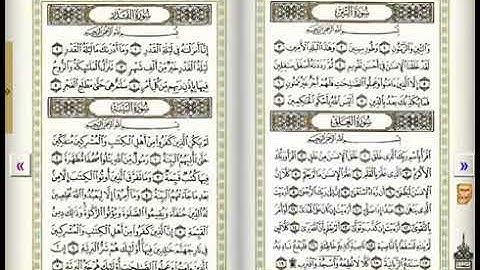 سورة التين
بسم الله الرحمن الرحيم
والتين والزيتون ١ وطور سينين ٢ وهذا البلد الأمين ٣
لقد خلقنا الإنسن في أحسن تقويم ٤ ثم رددنه أسفل سفلين
٥ إلا الذين ءامنوا وعملوا الصلحت فلهم أجر غير ممنون
٦ فما يكذبك بعد بالدين ٧ أليس الله بأحكم الحكمين ٨
سورة العلق
بسم الله الرحمن الرحيم
اقرأ باسم ربك الذي خلق ١ خلق الإنسن من علق ٢ اقرأ وربك
الأكرم ٣ الذي علم بالقلم ٤ علم الإنسن ما لم يعلم ٥ كلا
إن الإنسن ليطغى ٦ أن رءاه استغنى ٧ إن إلى ربك الرجعى ٨
أرءيت الذي ينهى ٩ عبدا إذا صلى ١٠ أرءيت إن كان على الهدى ١١
أو أمر بالتقوى ١٢ أرءيت إن كذب وتولى ١٣ ألم يعلم بأن الله يرى
١٤ كلا لئن لم ينته لنسفعا بالناصية ١٥ ناصية كذبة خاطئة ١٦
فليدع ناديه ١٧ سندع الزبانية ١٨ كلا لا تطعه واسجد واقترب ١٩
سورة القدر
بسم الله الرحمن الرحيم
إنا أنزلنه في ليلة القدر ١ وما أدرىك ما ليلة القدر ٢
ليلة القدر خير من ألف شهر ٣ تنزل الملئكة والروح
فيها بإذن ربهم من كل أمر ٤ سلم هي حتى مطلع الفجر ٥
سورة البينة
بسم الله الرحمن الرحيم
لم يكن الذين كفروا من أهل الكتب والمشركين منفكين
حتى تأتيهم البينة ١ رسول من الله يتلوا صحفا مطهرة ٢
فيها كتب قيمة ٣ وما تفرق الذين أوتوا الكتب إلا من
بعد ما جاءتهم البينة ٤ وما أمروا إلا ليعبدوا الله مخلصين
له الدين حنفاء ويقيموا الصلوة ويؤتوا الزكوة وذلك دين
القيمة ٥ إن الذين كفروا من أهل الكتب والمشركين
في نار جهنم خلدين فيها أولئك هم شر البرية ٦ إن
الذين ءامنوا وعملوا الصلحت أولئك هم خير البرية ٧